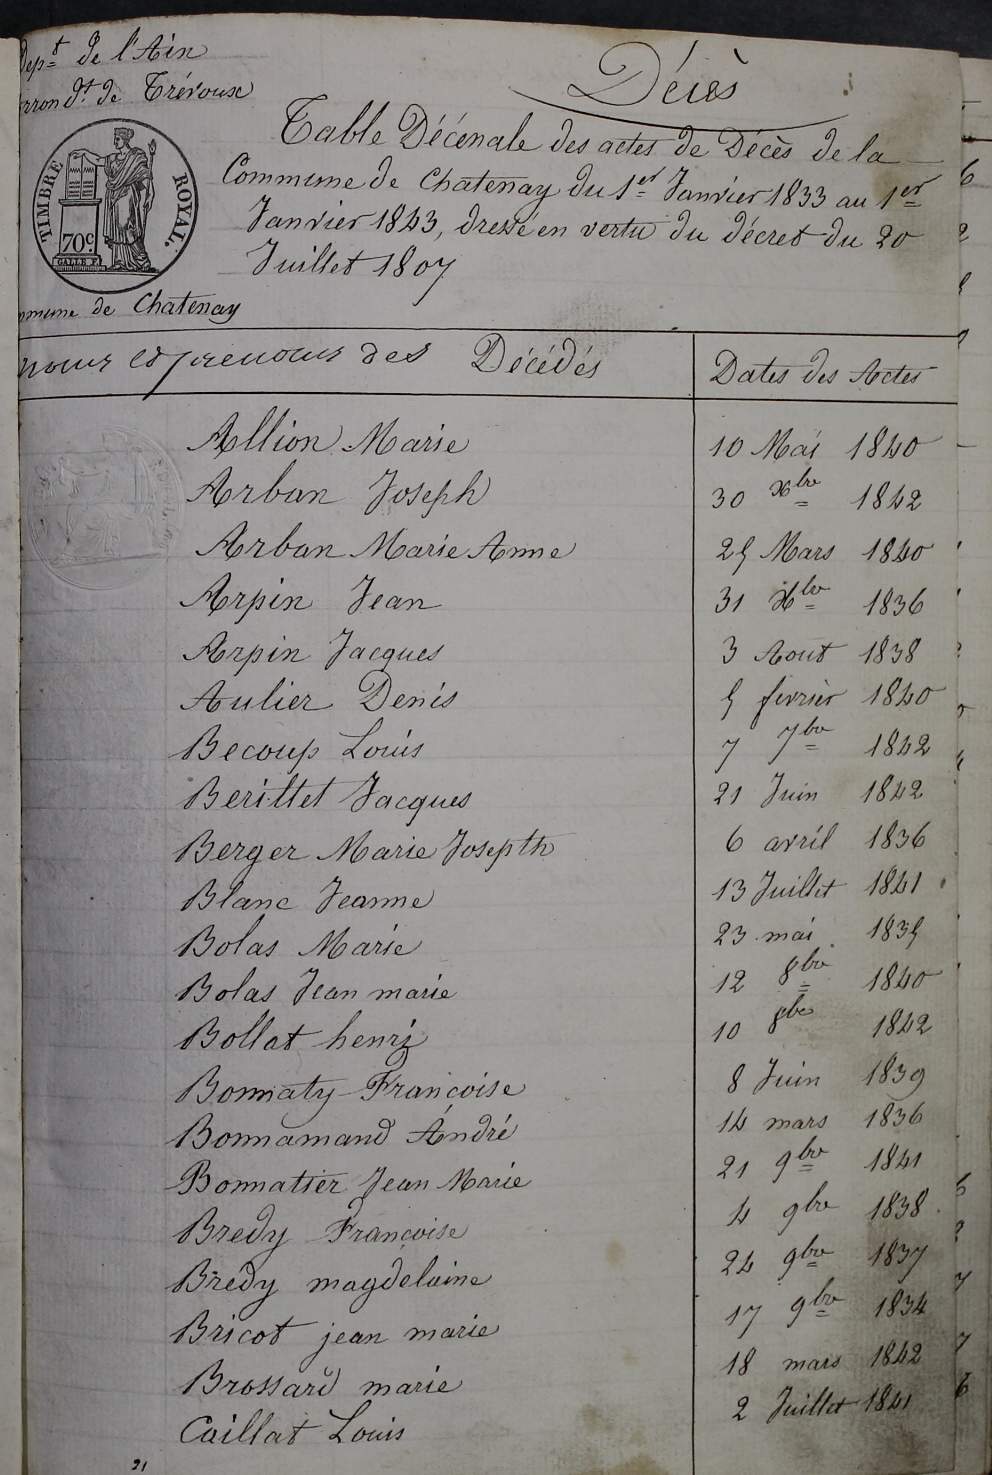 Dept de l'Ain
arrondt de Trévoux
Décès
Table Décénale des actes de Décès de la
Commune de Chatenay du 1er Janvier 1833 au 1er
Janvier 1843, dressé en vertu du décret du 20
Juillet 1807
TIMBRE ROYAL.
70c.
Commune de Chatenay
noms et prenoms des Décédés Dates des Actes
Allion Marie 10 Mai 1840
Arban Joseph 30 Xbre 1842
Arban Marie Anne 25 Mars 1840
Arpin Jean 31 Xbre 1836
Arpin Jacques 3 Aout 1838
Aulier Denis 5 fevrier 1840
Becoup Louis 7 7bre 1842
Berillet Jacques 21 Juin 1842
Berger Marie Josepth 6 avril 1836
Blanc Jeanne 13 Juillet 1841
Bolas Marie 23 mai 1835
Bolas Jean marie 12 8bre 1840
Bollat henri 10 8bre 1842
Bonnaty Françoise 8 Juin 1839
Bonnamand André 14 mars 1836
Bonnatier Jean Marie 21 9bre 1841
Bredy Françoise 4 9bre 1838
Bredy magdelaine 24 9bre 1837
Bricot jean marie 17 9bre 1834
Brossard marie 18 mars 1842
Caillat Louis 2 Juillet 1841
21